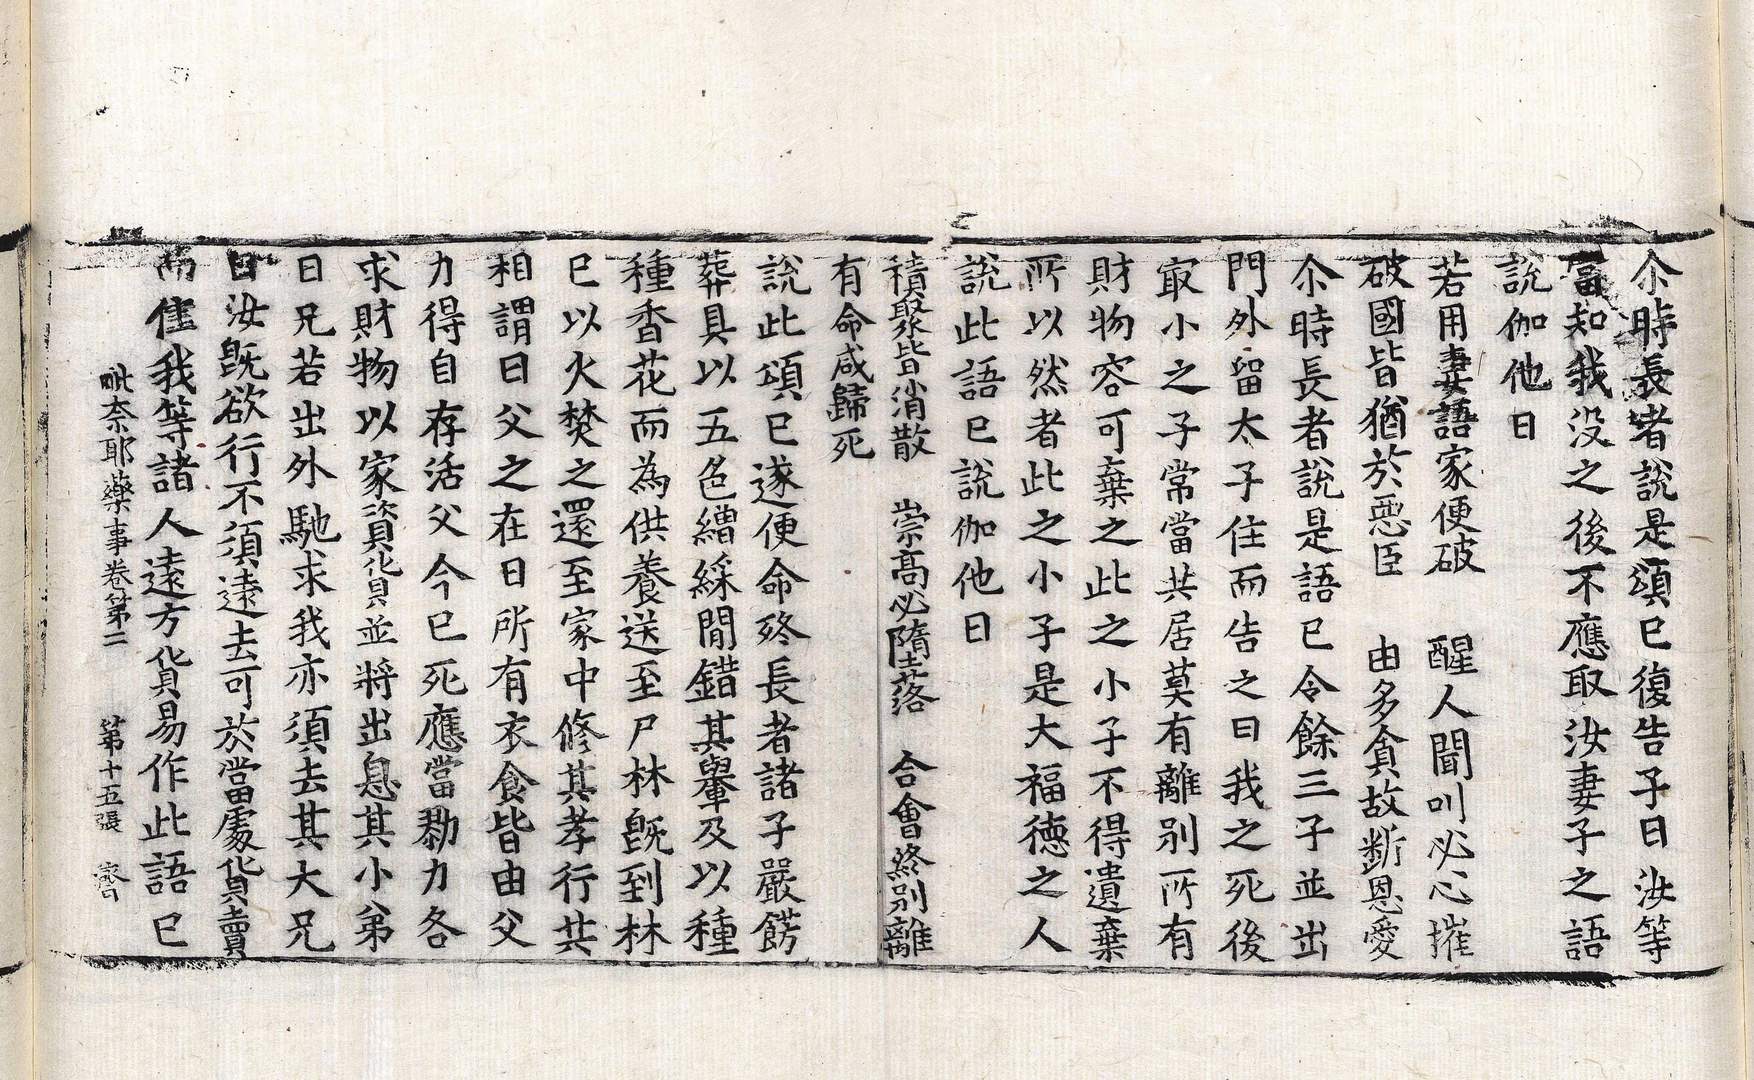 尒時長者說是頌已復告子曰汝等
當知我没之後不應取汝妻子之語
說伽他曰
若用妻語家便破　醒人聞叫必心摧
破國皆猶於惡臣　由多貪故斷恩愛
尒時長者說是語已令餘三子並出
門外留太子住而告之曰我之死後
㝡小之子常當共居莫有離别所有
財物容可棄之此之小子不得遺棄
所以然者此之小子是大福德之人
說此語已說伽他曰
積聚皆消散　崇高必墮落　合會終别離
有命咸歸死
說此頌已遂便命終長者諸子嚴餝
葬具以五色繒綵閒錯其轝及以種
種香花而為供養送至尸林旣到林
已以火焚之還至家中修其孝行共
相謂曰父之在日所有衣食皆由父
力得自存活父今已死應當勠力各
求財物以家資貨並將出息其小弟
曰兄若出外馳求我亦須去其大兄
曰汝旣欲行不須遠去可於當處貨賣
而住我等諸人遠方貨易作此語已
毗奈耶藥事卷第二　第十五張　齊